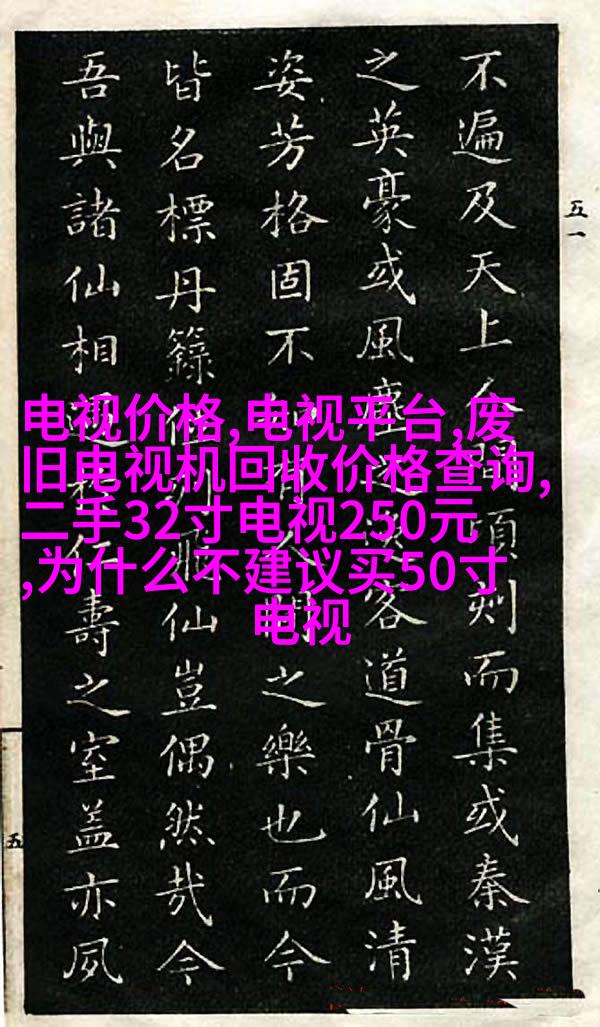 电视价格,电视平台,废
旧电视机回收价格查询,
二手32寸电视250元
,为什么不建议买50寸
电视
五一
不遍及天上人間頃刻而集或秦漢
之英豪或風塵之客道骨仙風清
姿芳格固不有人間之樂也而今
皆名標丹籙列飛仙豈偶然哉今
吾與諸仙相遇於仁壽之室蓋亦夙
五